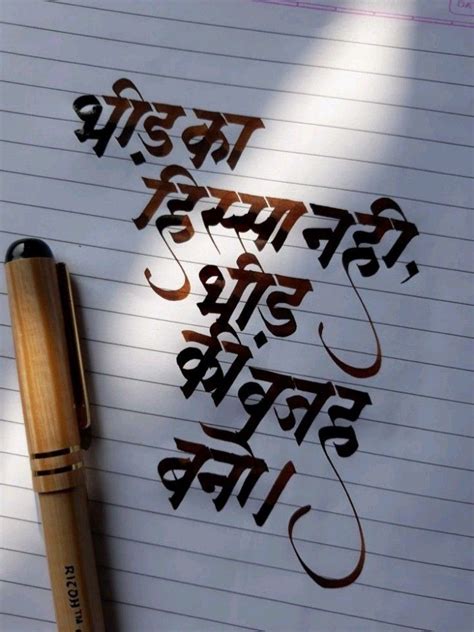 भीड़ का
हिस्सा नही,
भीड़
की वजह
बनो।
RICOH™